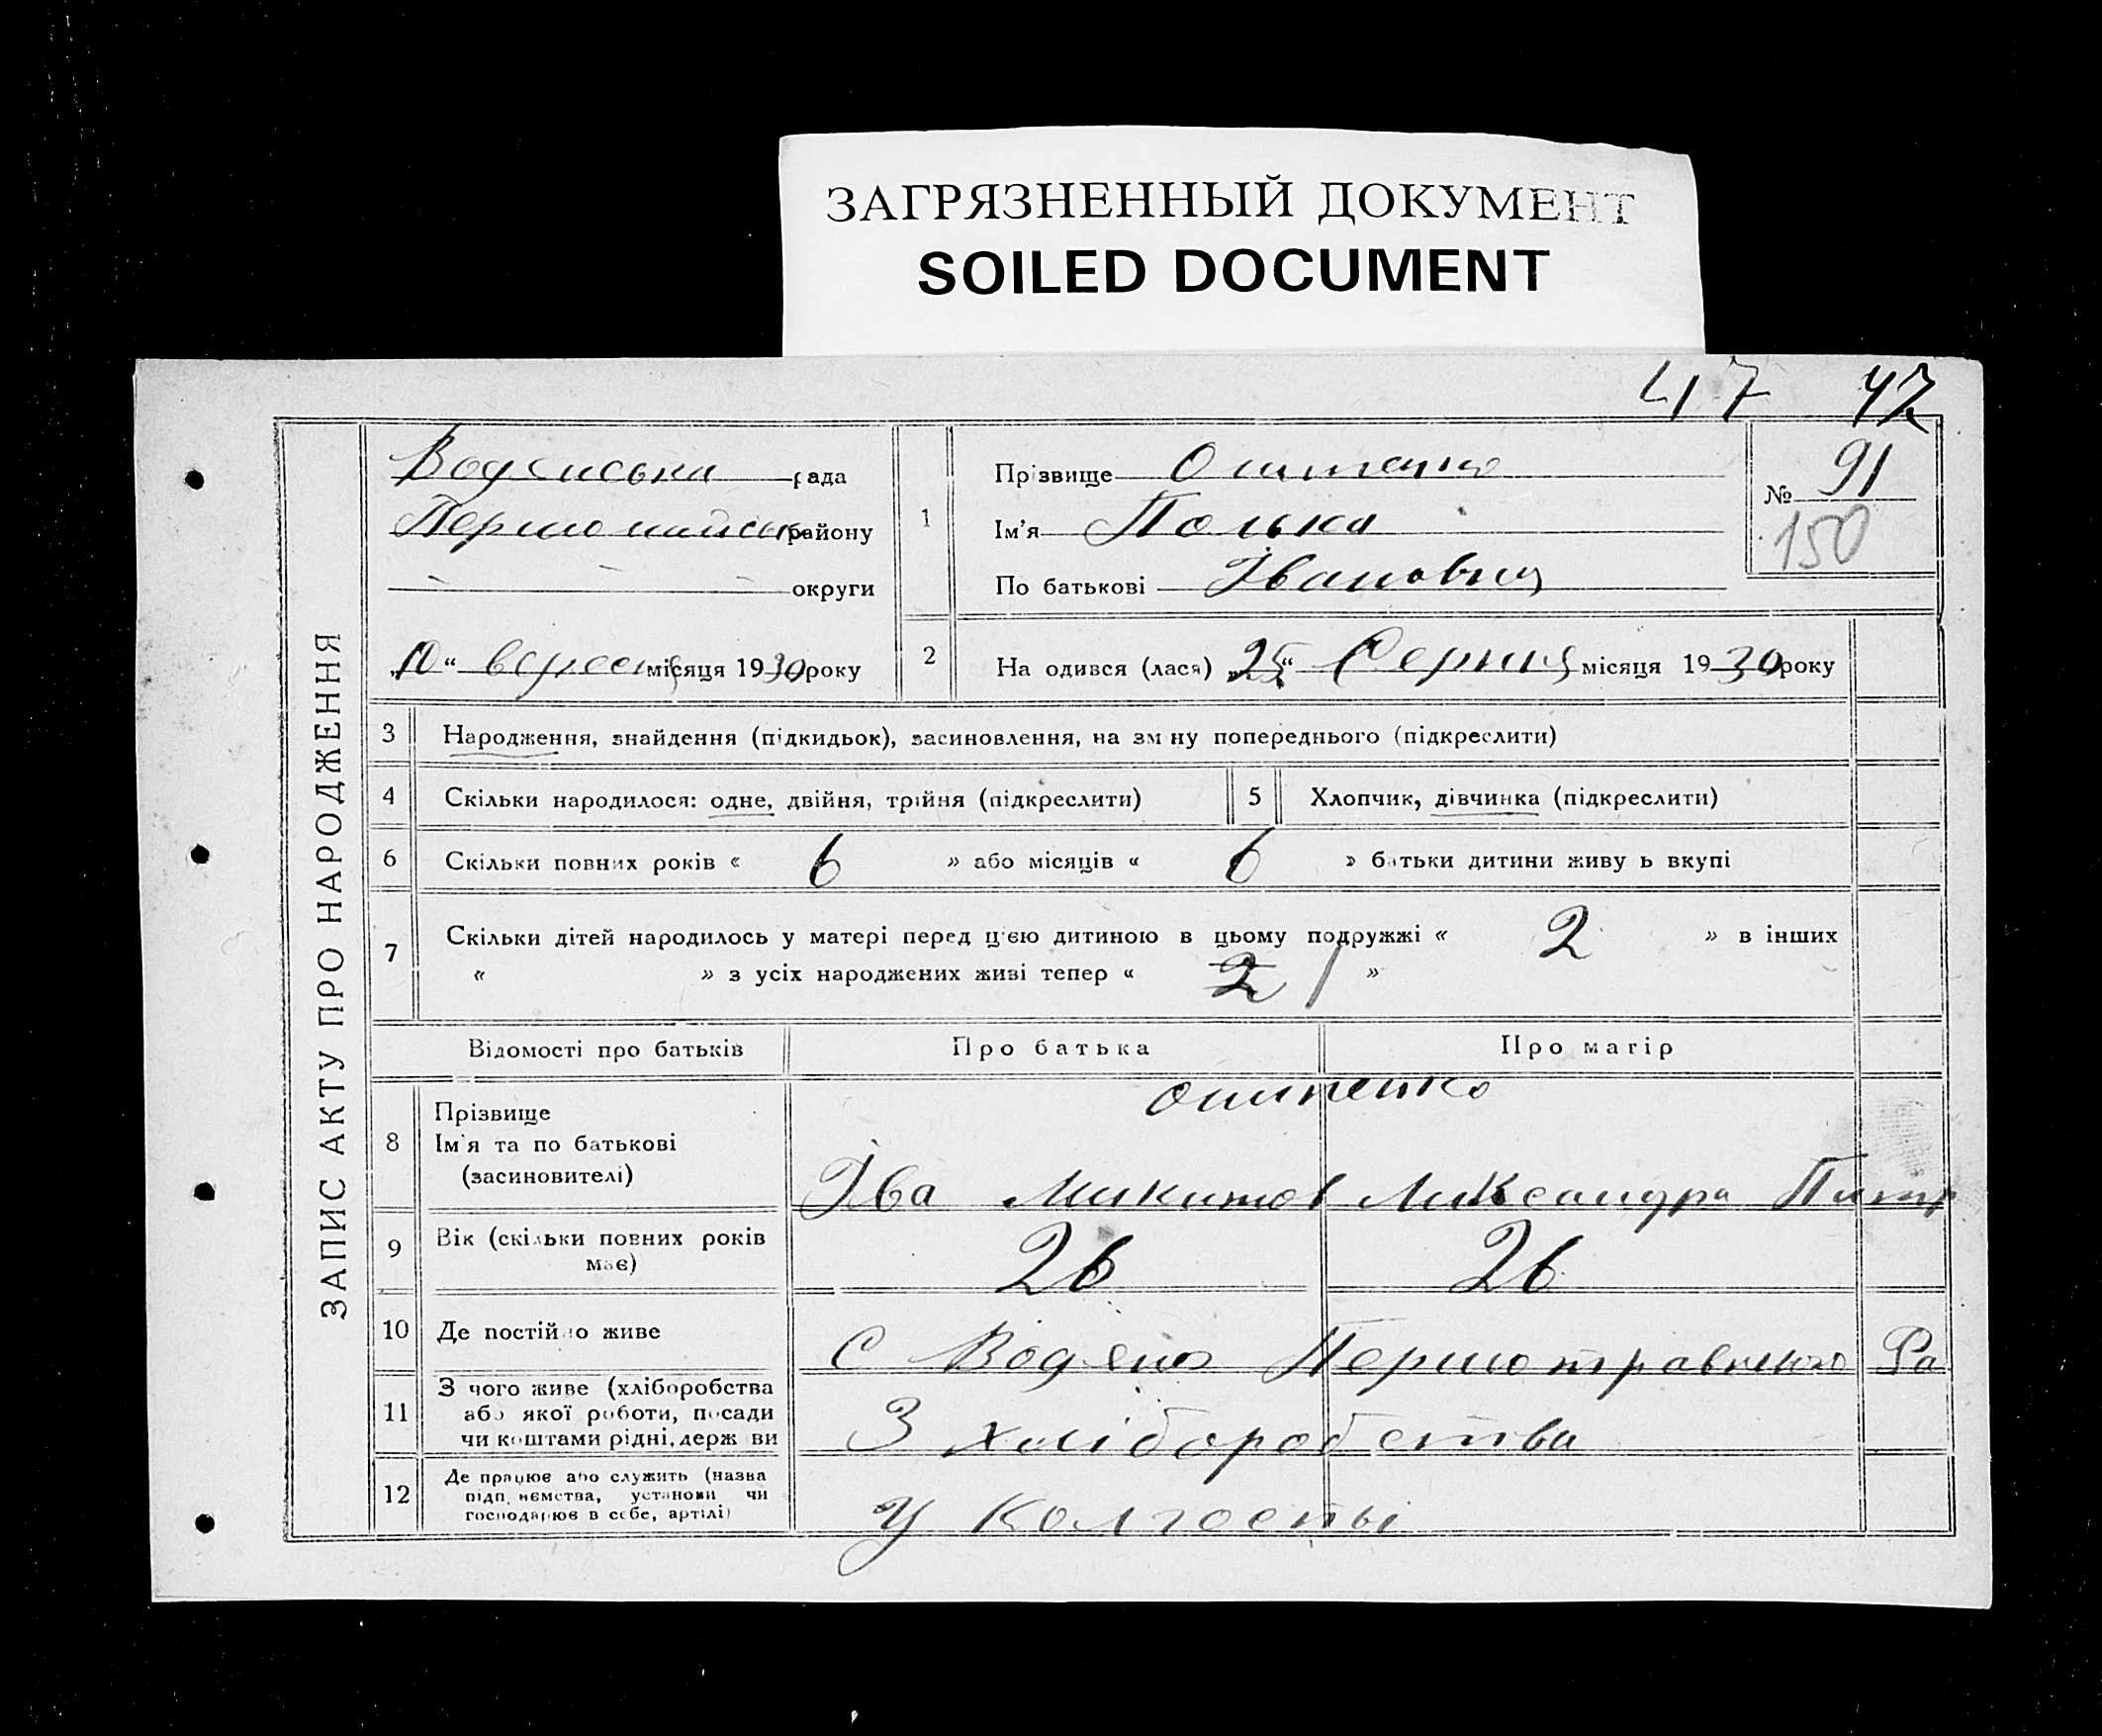 ЗАГРЯЗНЕННЫЙ ДОКУМЕНТ
SOILED DOCUMENT
47 47
ЗАПИС АКТУ ПРО НАРОДЖЕННЯ
Водянська рада
району
округи
1
Прізвище
Ім'я Полька
По батькові Івановна
№ 91
150
„10“ вересня місяця 1930 року
2
На одився (лася) „25“ Серпня місяця 1930 року
3 Народження, знайдення (підкидьок), засиновлення, на зм ну попереднього (підкреслити)
4 Скільки народилося: одне, двійня, трійня (підкреслити)
5 Хлопчик, дівчинка (підкреслити)
6 Скільки повних років « 6 » або місяців « 6 » батьки дитини живу ь вкупі
7 Скільки дітей народилось у матері перед цією дитиною в цьому подружжі « 2 » в інших
« » з усіх народжених живі тепер « 2 1 »
Відомості про батьків Про батька Про матір
8 Прізвище
Ім'я та по батькові
(засиновителі)
Іва Микитов Ликсандра Питр
9 Вік (скільки повних років
має)
26 26
10 Де постійно живе С Водяно Першотравного Ра
11 З чого живе (хліборобства
або якої роботи, посади
чи коштами рідні, держ ви
З хліборобства
12 Де працює або служить (назва
підп. ємства, установи чи
господарює в себе, артілі)
У колгоспі